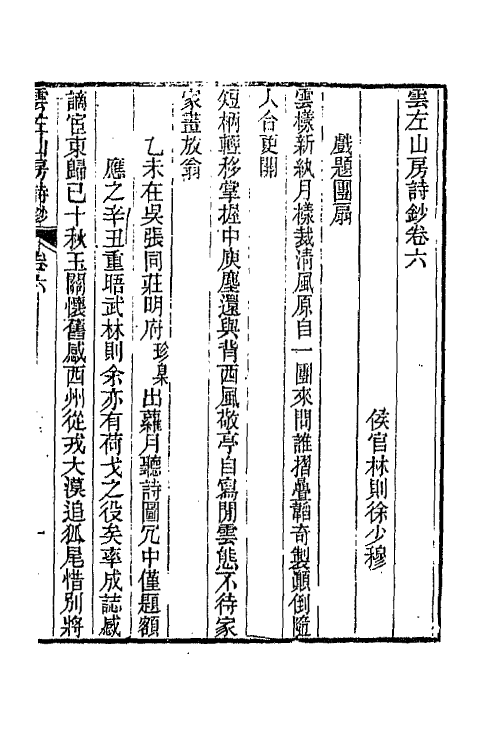 雲左山房詩鈔卷六
侯官林則徐少穆
戲題團扇
雲樣新紈月樣裁清風原自一團來問誰摺疊謅奇製顛倒隨
人合更開
短柄輕移掌握中庾塵還與背西風敬亭自寫閒雲態不待家
家畫放翁
乙未在吳張同莊明府珍臬出蘿月聽詩圖冗中僅題額
應之辛丑重晤武林則余亦有荷戈之役矣率成誌感
謫宦東歸已十秋玉關懷舊感西州從戎大漠追狐尾惜別將
雲左山房詩鈔 卷六 一